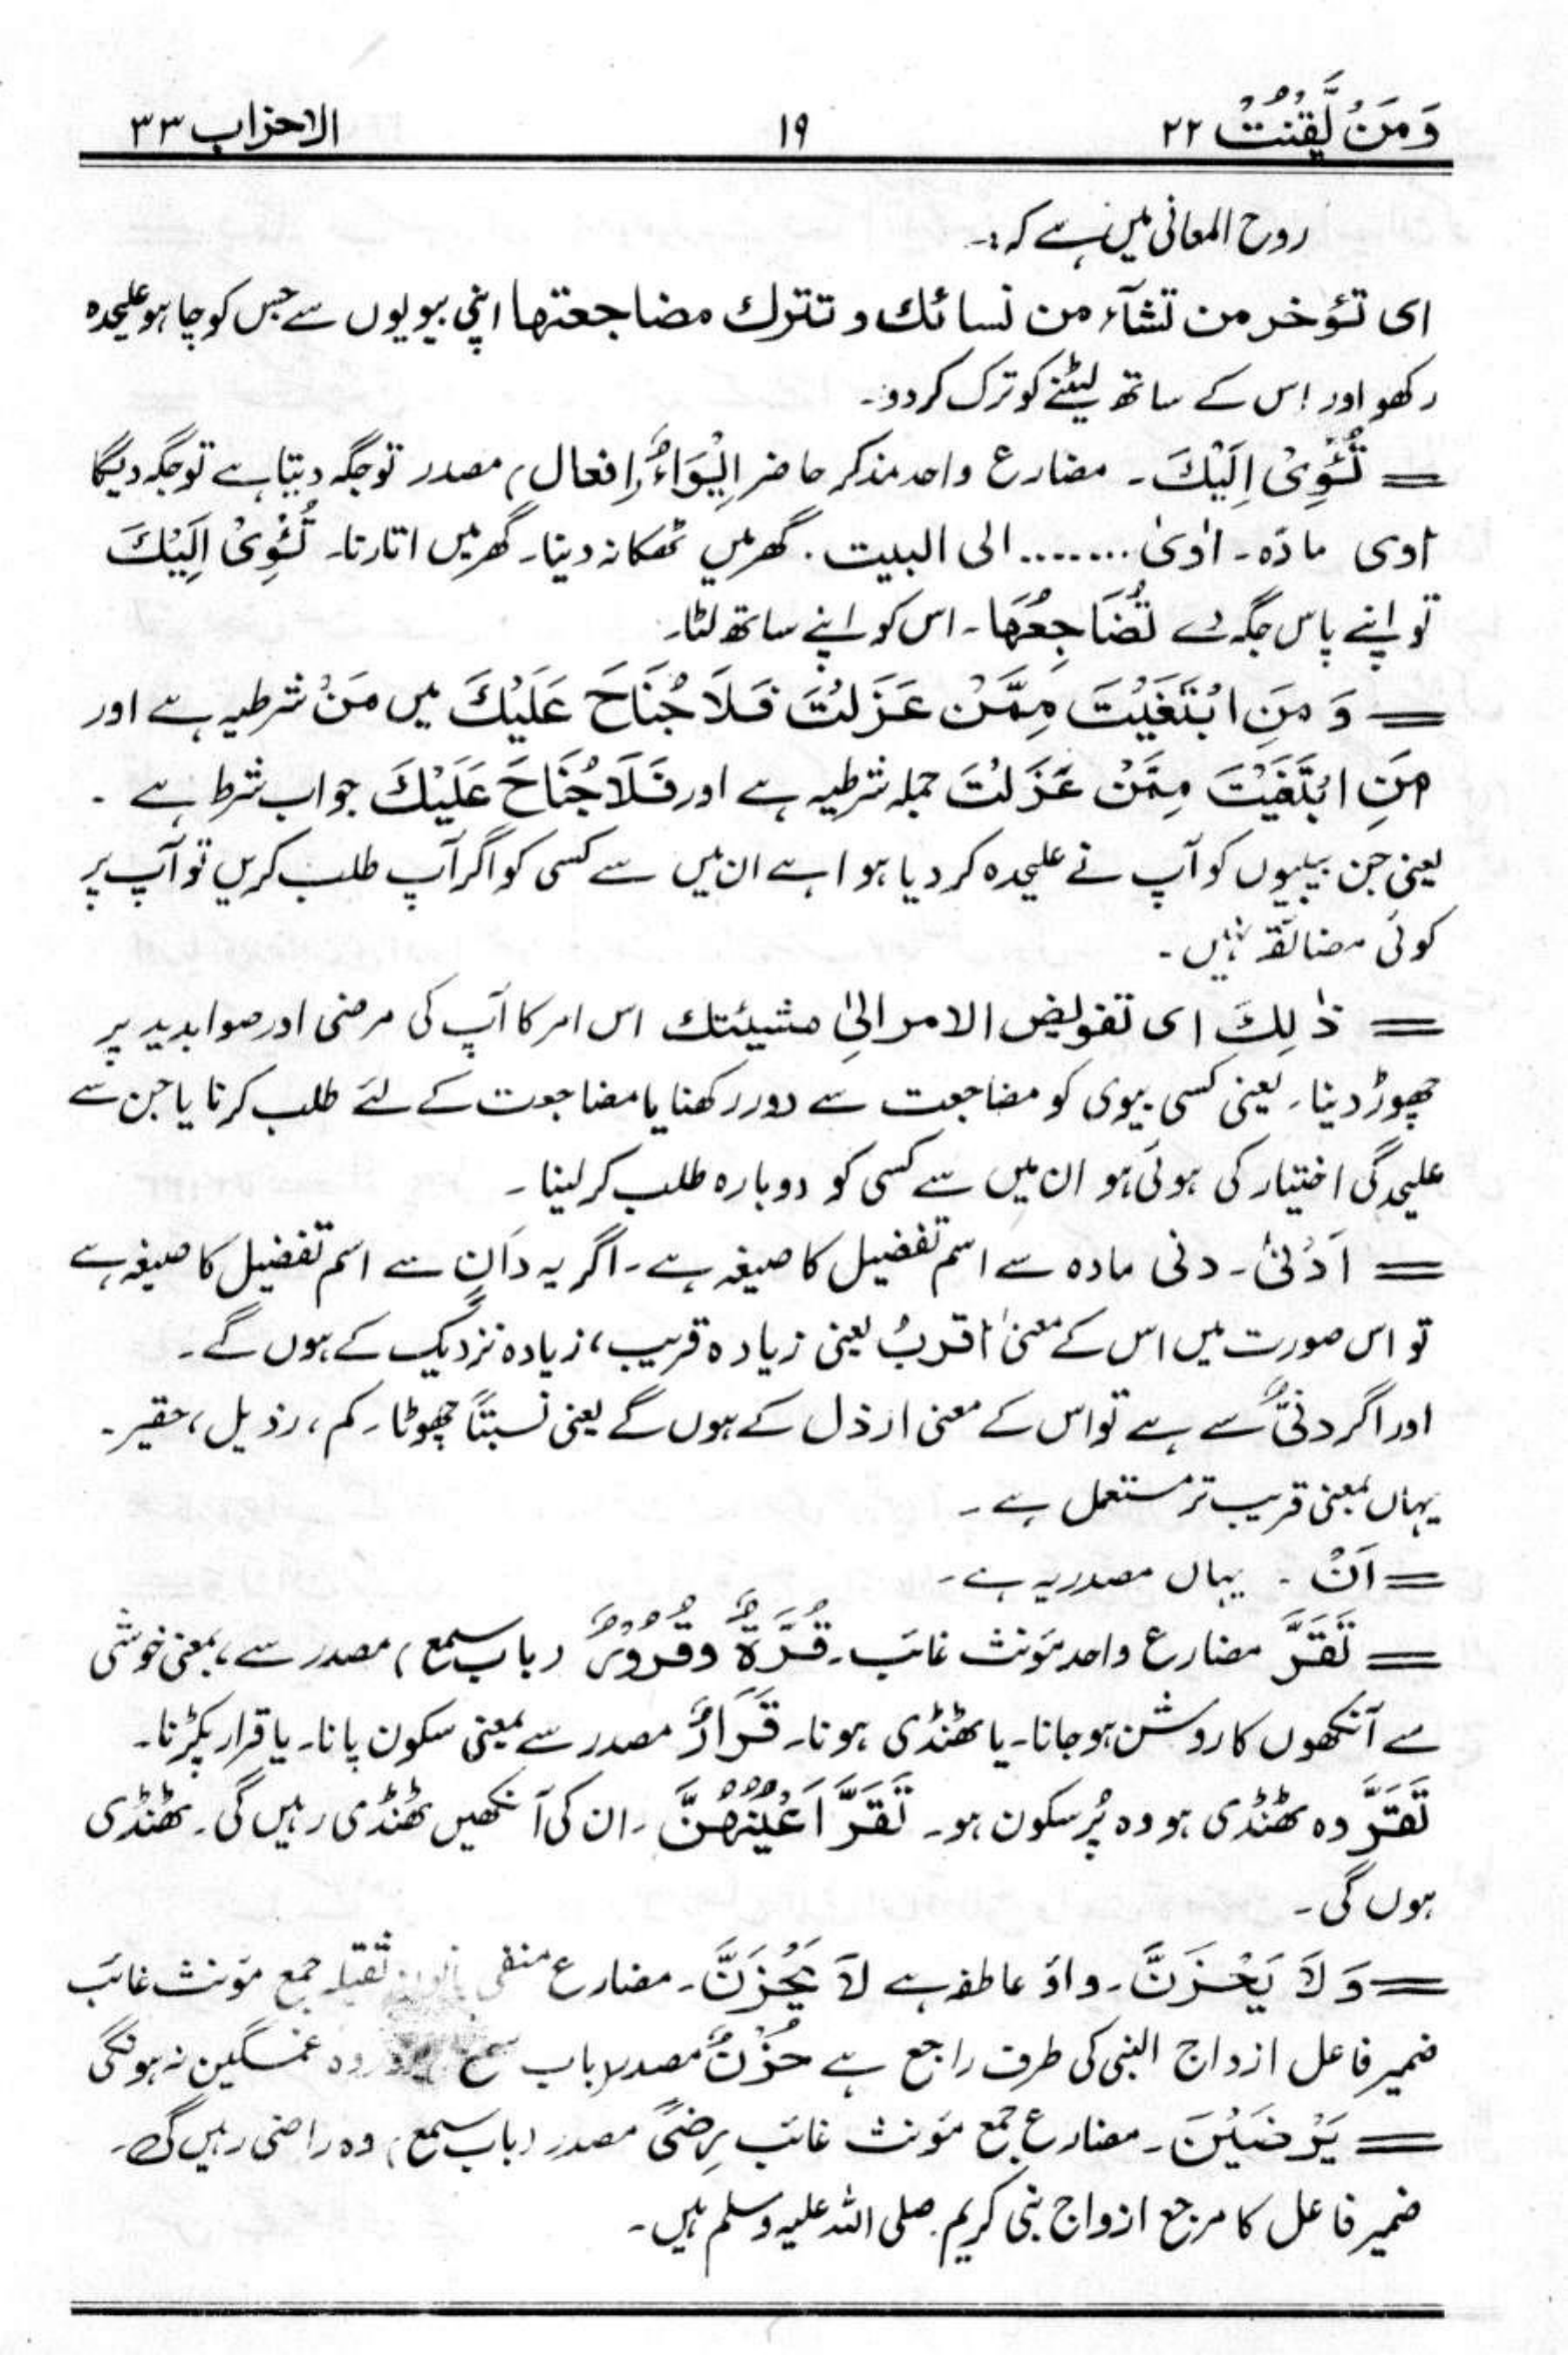 وَمَنْ يَّقْنُتْ ۲۲ ۱۹ الاحزاب ۳۳
روح المعانی میں ہے کہ:۔
ای تؤخر من تشآء من نسائك و تترك مضاجعتها اپنی بیویوں سے جس کو چاہو علیحدہ
رکھو اور اس کے ساتھ لیٹنے کو ترک کردو۔
= تُــْٔوِیْ اِلَيْكَ۔ مضارع واحد مذکر حاضر اِيْوَاءٌ (افعال) مصدر تو جگہ دیتا ہے تو جگہ دیگا
اوی مادّہ۔ اوٰی ........ الی البیت۔ گھر میں ٹھکانہ دینا۔ گھر میں اتارنا۔ تُــْٔوِیْ اِلَيْكَ
تو اپنے پاس جگہ دے تُضَاجِعُهَا۔ اس کو اپنے ساتھ لٹا۔
= وَ مَنِ ابْتَغَيْتَ مِمَّنْ عَزَلْتَ فَلَا جُنَاحَ عَلَيْكَ میں مَنْ شرطیہ ہے اور
مَنِ ابْتَغَيْتَ مِمَّنْ عَزَلْتَ جملہ شرطیہ ہے اور فَلَا جُنَاحَ عَلَيْكَ جواب شرط ہے ۔
یعنی جن بیبیوں کو آپ نے علیحدہ کر دیا ہوا ہے ان میں سے کسی کو اگر آپ طلب کریں تو آپ پر
کوئی مضائقہ نہیں۔
= ذٰلِكَ ای تفویض الامر الیٰ مشیئتك اس امر کا آپ کی مرضی اور صوابدید پر
چھوڑ دینا۔ یعنی کسی بیوی کو مضاجعت سے دور رکھنا یا مضاجعت کے لئے طلب کرنا یا جن سے
علیحدگی اختیار کی ہوئی ہو ان میں سے کسی کو دوبارہ طلب کر لینا۔
= اَدْنٰی۔ دنی مادہ سے اسم تفضیل کا صیغہ ہے۔ اگر یہ دَانٍ سے اسم تفضیل کا صیغہ ہے
تو اس صورت میں اس کے معنیٰ اقربُ یعنی زیادہ قریب، زیادہ نزدیک کے ہوں گے۔
اور اگر دنیٌّ سے ہے تو اس کے معنی ارذل کے ہوں گے یعنی نسبتاً چھوٹا۔ کم، رذیل، حقیر۔
یہاں بمعنی قریب تر مستعمل ہے۔
= اَنْ ۔ یہاں مصدریہ ہے۔
= تَقَرَّ مضارع واحد مؤنث غائب۔ قُرَّةٌ وقُرُوْرٌ (باب سمع) مصدر سے، بمعنی خوشی
سے آنکھوں کا روشن ہوجانا۔ یا ٹھنڈی ہونا۔ قَرَارٌ مصدر سے بمعنی سکون پانا۔ یا قرار پکڑنا۔
تَقَرَّ وہ ٹھنڈی ہو وہ پُرسکون ہو۔ تَقَرَّ اَعْيُنُهُنَّ۔ ان کی آنکھیں ٹھنڈی رہیں گی۔ ٹھنڈی
ہوں گی۔
= وَلَا يَحْزَنَّ۔ واؤ عاطفہ ہے لَا يَحْزَنَّ۔ مضارع منفی ثقیلہ جمع مؤنث غائب
ضمیر فاعل ازواج النبی کی طرف راجع ہے حُزْنٌ مصدر (باب سمع) وہ غمگین نہ ہونگی
= يَرْضَيْنَ۔ مضارع جمع مؤنث غائب رِضًی مصدر (باب سمع) وہ راضی رہیں گی۔
ضمیر فاعل کا مرجع ازواج نبی کریم صلی اللہ علیہ وسلم ہیں۔